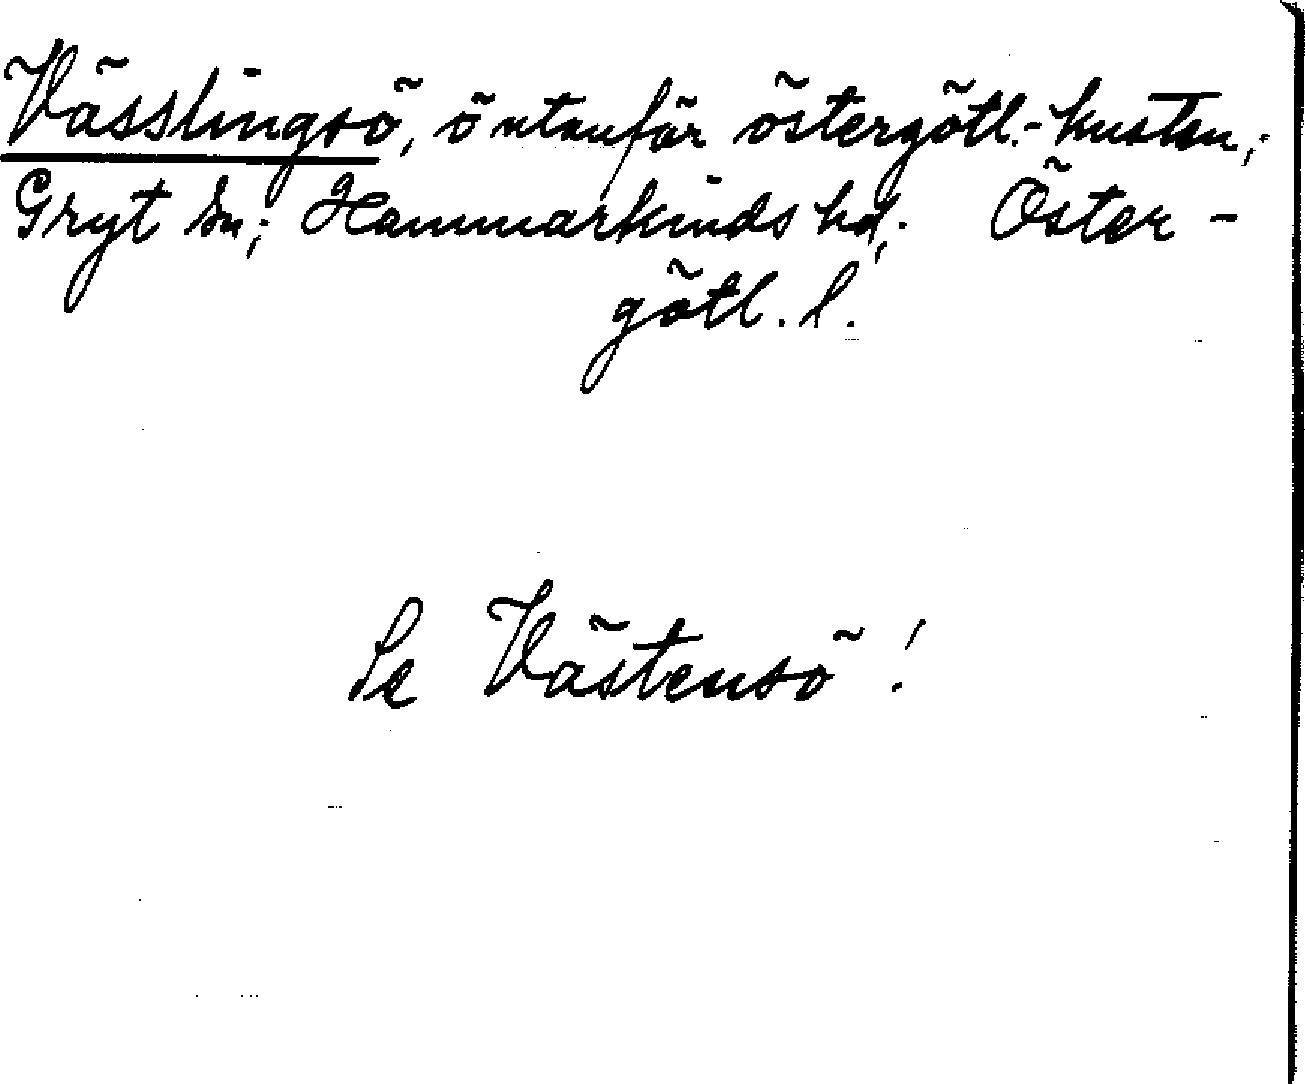 Vässlingsö, ö utanför östergötl.-kusten;
Gryt sn; Hammarkinds hd; Öster-
götl. l.
Se Västensö!